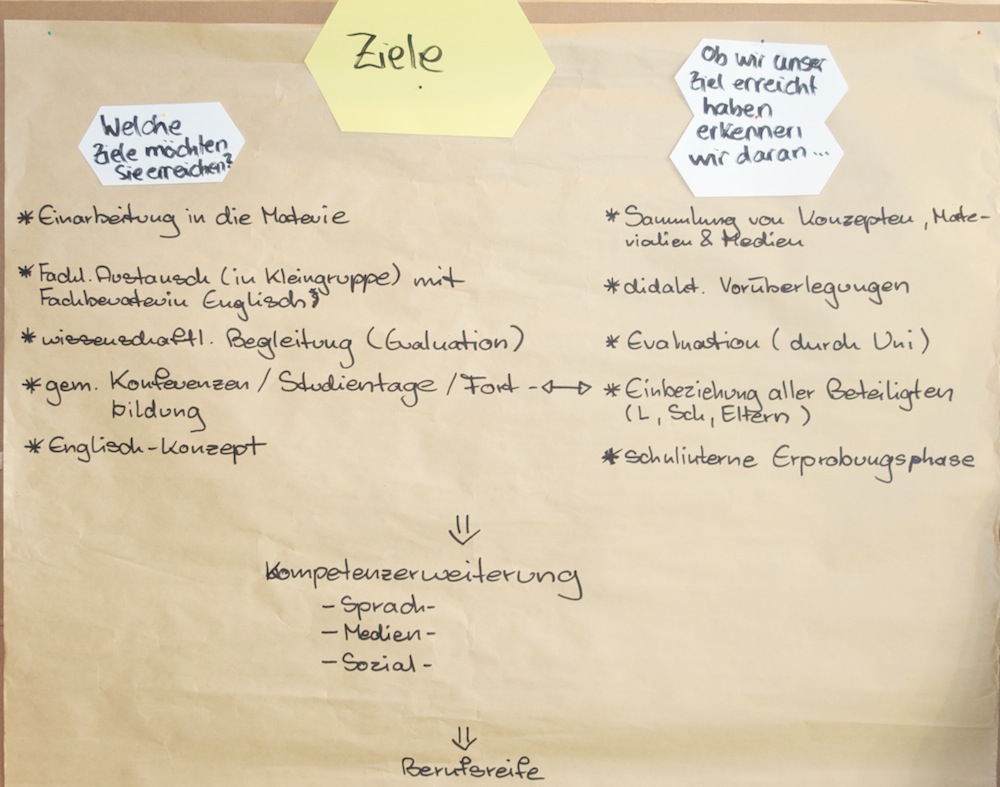 Ziele
Welche
Ziele möchten
Sie erreichen?
* Einarbeitung in die Materie
* Fachl. Austausch (in Kleingruppe) mit
Fachberaterin Englisch
* wissenschaftl. Begleitung (Evaluation)
* gem. Konferenzen / Studientage / Fort -
bildung
* Englisch-Konzept
Ob wir unser
Ziel erreicht
haben
erkennen
wir daran...
* Sammlung von Konzepten, Mate-
rialien & Medien
* didakt. Vorüberlegungen
* Evaluation (durch Uni)
* Einbeziehung aller Beteiligten
(L, Sch, Eltern)
* schulinterne Erprobungsphase
⇓
Kompetenzerweiterung
- Sprach-
- Medien-
- Sozial-
⇓
Berufsreife